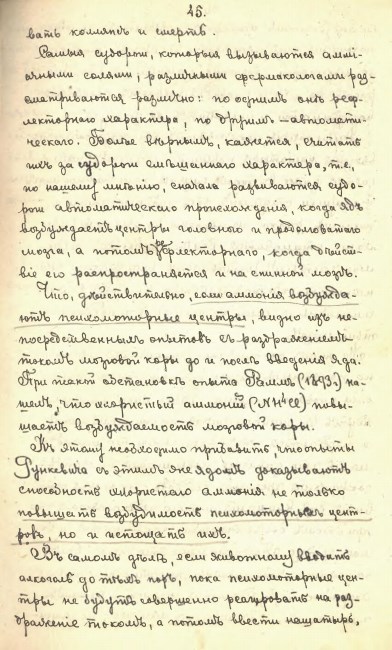 15.
вать коллапс и смерть.
Самыя судороги, которыя вызываются аммі-
ачными солями, различными фармакологами раз-
сматриваются различно: по однимъ онѣ реф-
лекторнаго характера, по другимъ – автомати-
ческаго. Болѣе вѣрнымъ, кажется, считать
ихъ за судороги смѣшаннаго характера, т.е.,
по нашему мнѣнію, сначала развиваются судо-
роги автоматическаго происхожденія, когда ядъ
возбуждаетъ центры головного и продолговатаго
мозга, а потомъ рефлекторнаго, когда дѣйст-
віе его распространяется и на спинной мозгъ.
Что, дѣйствительно, соли аммонія возбужда-
ютъ психомоторные центры, видно изъ не-
посредственныхъ опытовъ съ раздраженіемъ
токомъ мозговой коры до и послѣ введенія яда.
При такой обстановкѣ опыта Рамма (1893.) на-
шелъ, что хлористый аммоній (NH⁴Cl) повы-
шаетъ возбуждаемость мозговой коры.
Къ этому необходимо прибавить, что опыты
Рункевича съ этимъ же ядомъ доказываютъ
способность хлористаго аммонія не только
повышать возбудимость психомоторныхъ цент-
ровъ, но и истощать ихъ.
Въ самомъ дѣлѣ, если животному вводить
алкоголь до тѣхъ поръ, пока психомоторные цен-
тры не будутъ совершенно реагировать на раз-
драженіе токомъ, а потомъ ввести нашатырь,